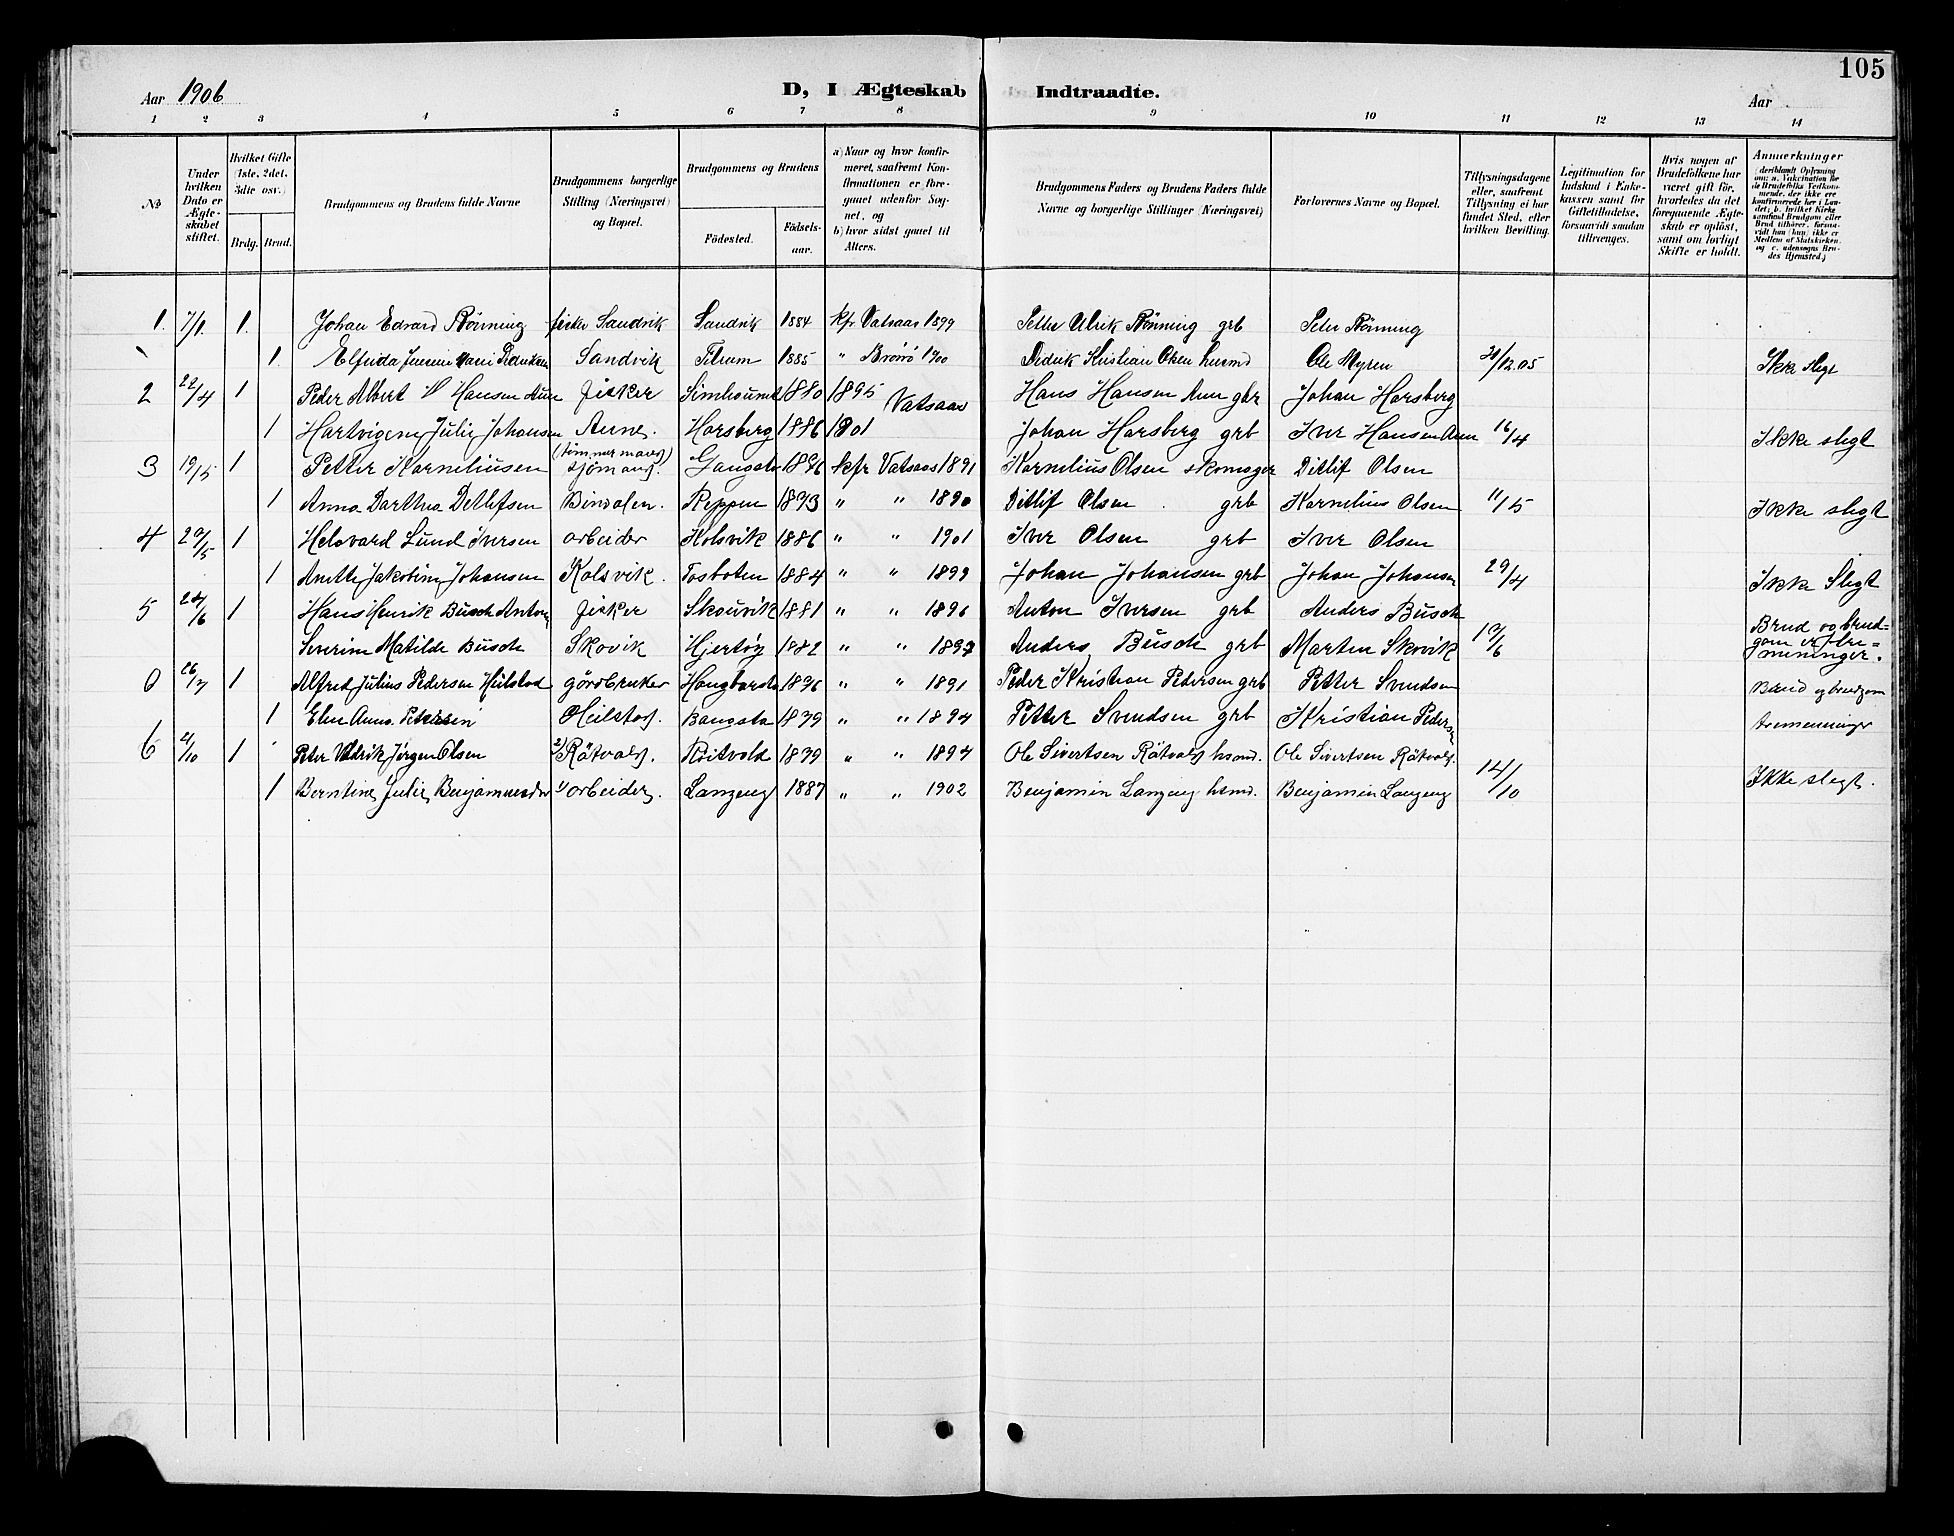 105
Aar 1906
D, I Ægteskab Indtraadte.
Aar
1 2 3 4 5 6 7 8 9 10 11 12 13 14
No
Under hvilken Dato er Ægte-skabet stiftet.
Hvilket Gifte (1ste, 2det, 3die osv.)
Brdg. Brud.
Brudgommens og Brudens fulde Navne
Brudgommens borgerlige Stilling (Næringsvei) og Bopæl.
Brudgommens og Brudens
Födested.
Födsels-aar.
a) Naar og hvor konfir-meret, saafremt Kon-firmationen er fore-gaaet udenfor Sog-net, og
b) hvor sidst gaaet til Alters.
Brudgommens Faders og Brudens Faders fulde Navne og borgerlige Stillinger (Næringsvei)
Forlovernes Navne og Bopæl.
Tillysningsdagene eller, saafremt Tillysning ei har fundet Sted, efter hvilken Bevilling.
Legitimation for Indskud i Enke-kassen samt for Giftetilladelse, forsaavidt saadan tiltrænges.
Hvis nogen af Brudefolkene har været gift för, hvorledes da det foregaaende Ægte-skab er oplöst, samt om lovligt Skifte er holdt.
Anmærkninger
(deriblandt Oplysning om: a. Vakcination for de Brudefolks Vedkom-mende, der ikke ere konfirmerede her i Lan-det; b. hvilket Kirke-samfund Brudgom eller Brud tilhörer, forsaa-vidt han (hun) ikke er Medlem af Statskirken, og c. udensogns Bru-des Hjemsted.)
1. 7/1. 1. Johan Edvard Rönning fisker Sandvik Sandvik 1884 kfr Vatsaas 1899 Petter Ulrik Rönning grb Peter Rönning
1. Elfrida Jensine Marie Sandvik Titrum 1885 " Brönö 1900 Didrik Kristian Olsen husmd Ole Myren 31/12.05 Ikke slegt
2 22/4 1 Peder Albert Hansen Aune fisker 1880 1895 Vatsaas Hans Hansen Aun gbr Johan Horsberg
1 Hartvigene Julie Johansen Aune. Horsberg 1886 1801 Johan Horsberg grb Iver Hansen Aun 16/4 Ikke slegt
3 19/5 1 Petter Korneliussen (tömmermand) sjömand. Gangstø 1876 kfr Vatsaas 1891 Kornelius Olsen skomager Ditlif Olsen
1 Anna Dorthea Detlefsen Bindalen. Reppen 1873 " " 1890 Ditlif Olsen grb Kornelius Olsen 11/5 Ikke slegt
4 20/5 1 Helovard Lund Iversen arbeider Kolsvik 1886 " " 1901 Iver Olsen grb Iver Olsen
1 Anette Jakobine Johansen Kolsvik. Tosboten 1884 " " 1899 Johan Johansen grb Johan Johansen 29/4 Ikke Slegt
5 24/6 1 Hans Henrik Busch Anton fisker Skouvik 1881 " " 1896 Anton Iversen grb Anders Busch
Severine Matilde Busch Skovik Hjertöy 1882 " " 1897 Anders Busch grb Martin Skovik 10/6 Brud og brud-gom er tre-menninger.
0 26/7 1 Alfred Julius Pedersen Heilstad gårdbruker 1876 " " 1891 Peder Kristian Pedersen grb Petter Svendsen Brud og brudgom
1 Elen Anna Petersen Heilstad. Bangstø 1879 " " 1894 Petter Svendsen grb Kristian Pedersen tremenninger
6 21/10 1 Peter Jörgen Olsen 2) Råtvold. Röitvold 1879 " " 1894 Ole Sivertsen Råtvold husmd. Ole Sivertsen Råtvold.
1 Berntine Julie Benjaminsdtr 1) arbeider. Langeng 1887 " " 1902 Benjamin Langeng husmd. Benjamin Langeng 14/10 Ikke slegt.